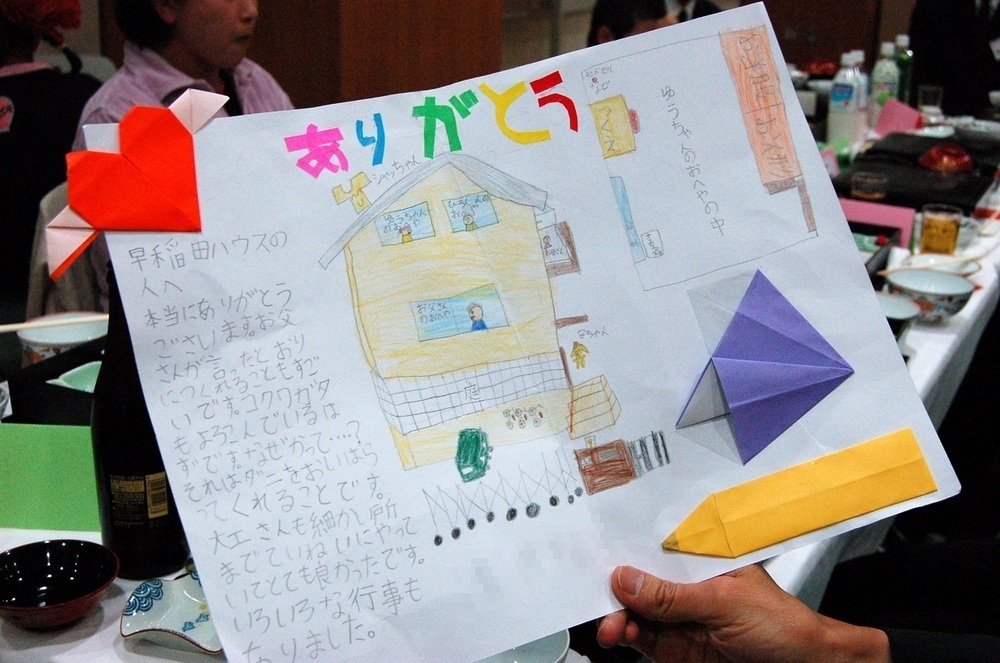 ありがとう
早稲田ハウスの
人へ
本当にありがとう
ございます。お父
さんが言ったとおり
につくれることもすご
いです。コクワガタ
もよろこんでいるは
ずです。なぜかって…?
それはダニをおいはら
ってくれることです。
大工さんも細かい所
までていねいにやって
いてとても良かったです。
いろいろな行事も
ありました。
シャッちゃん
ゆうちゃん
のおへや
お父さん
のおへや
庭
ゆうちゃんのおへやの中
つくえ
ランドセル
など